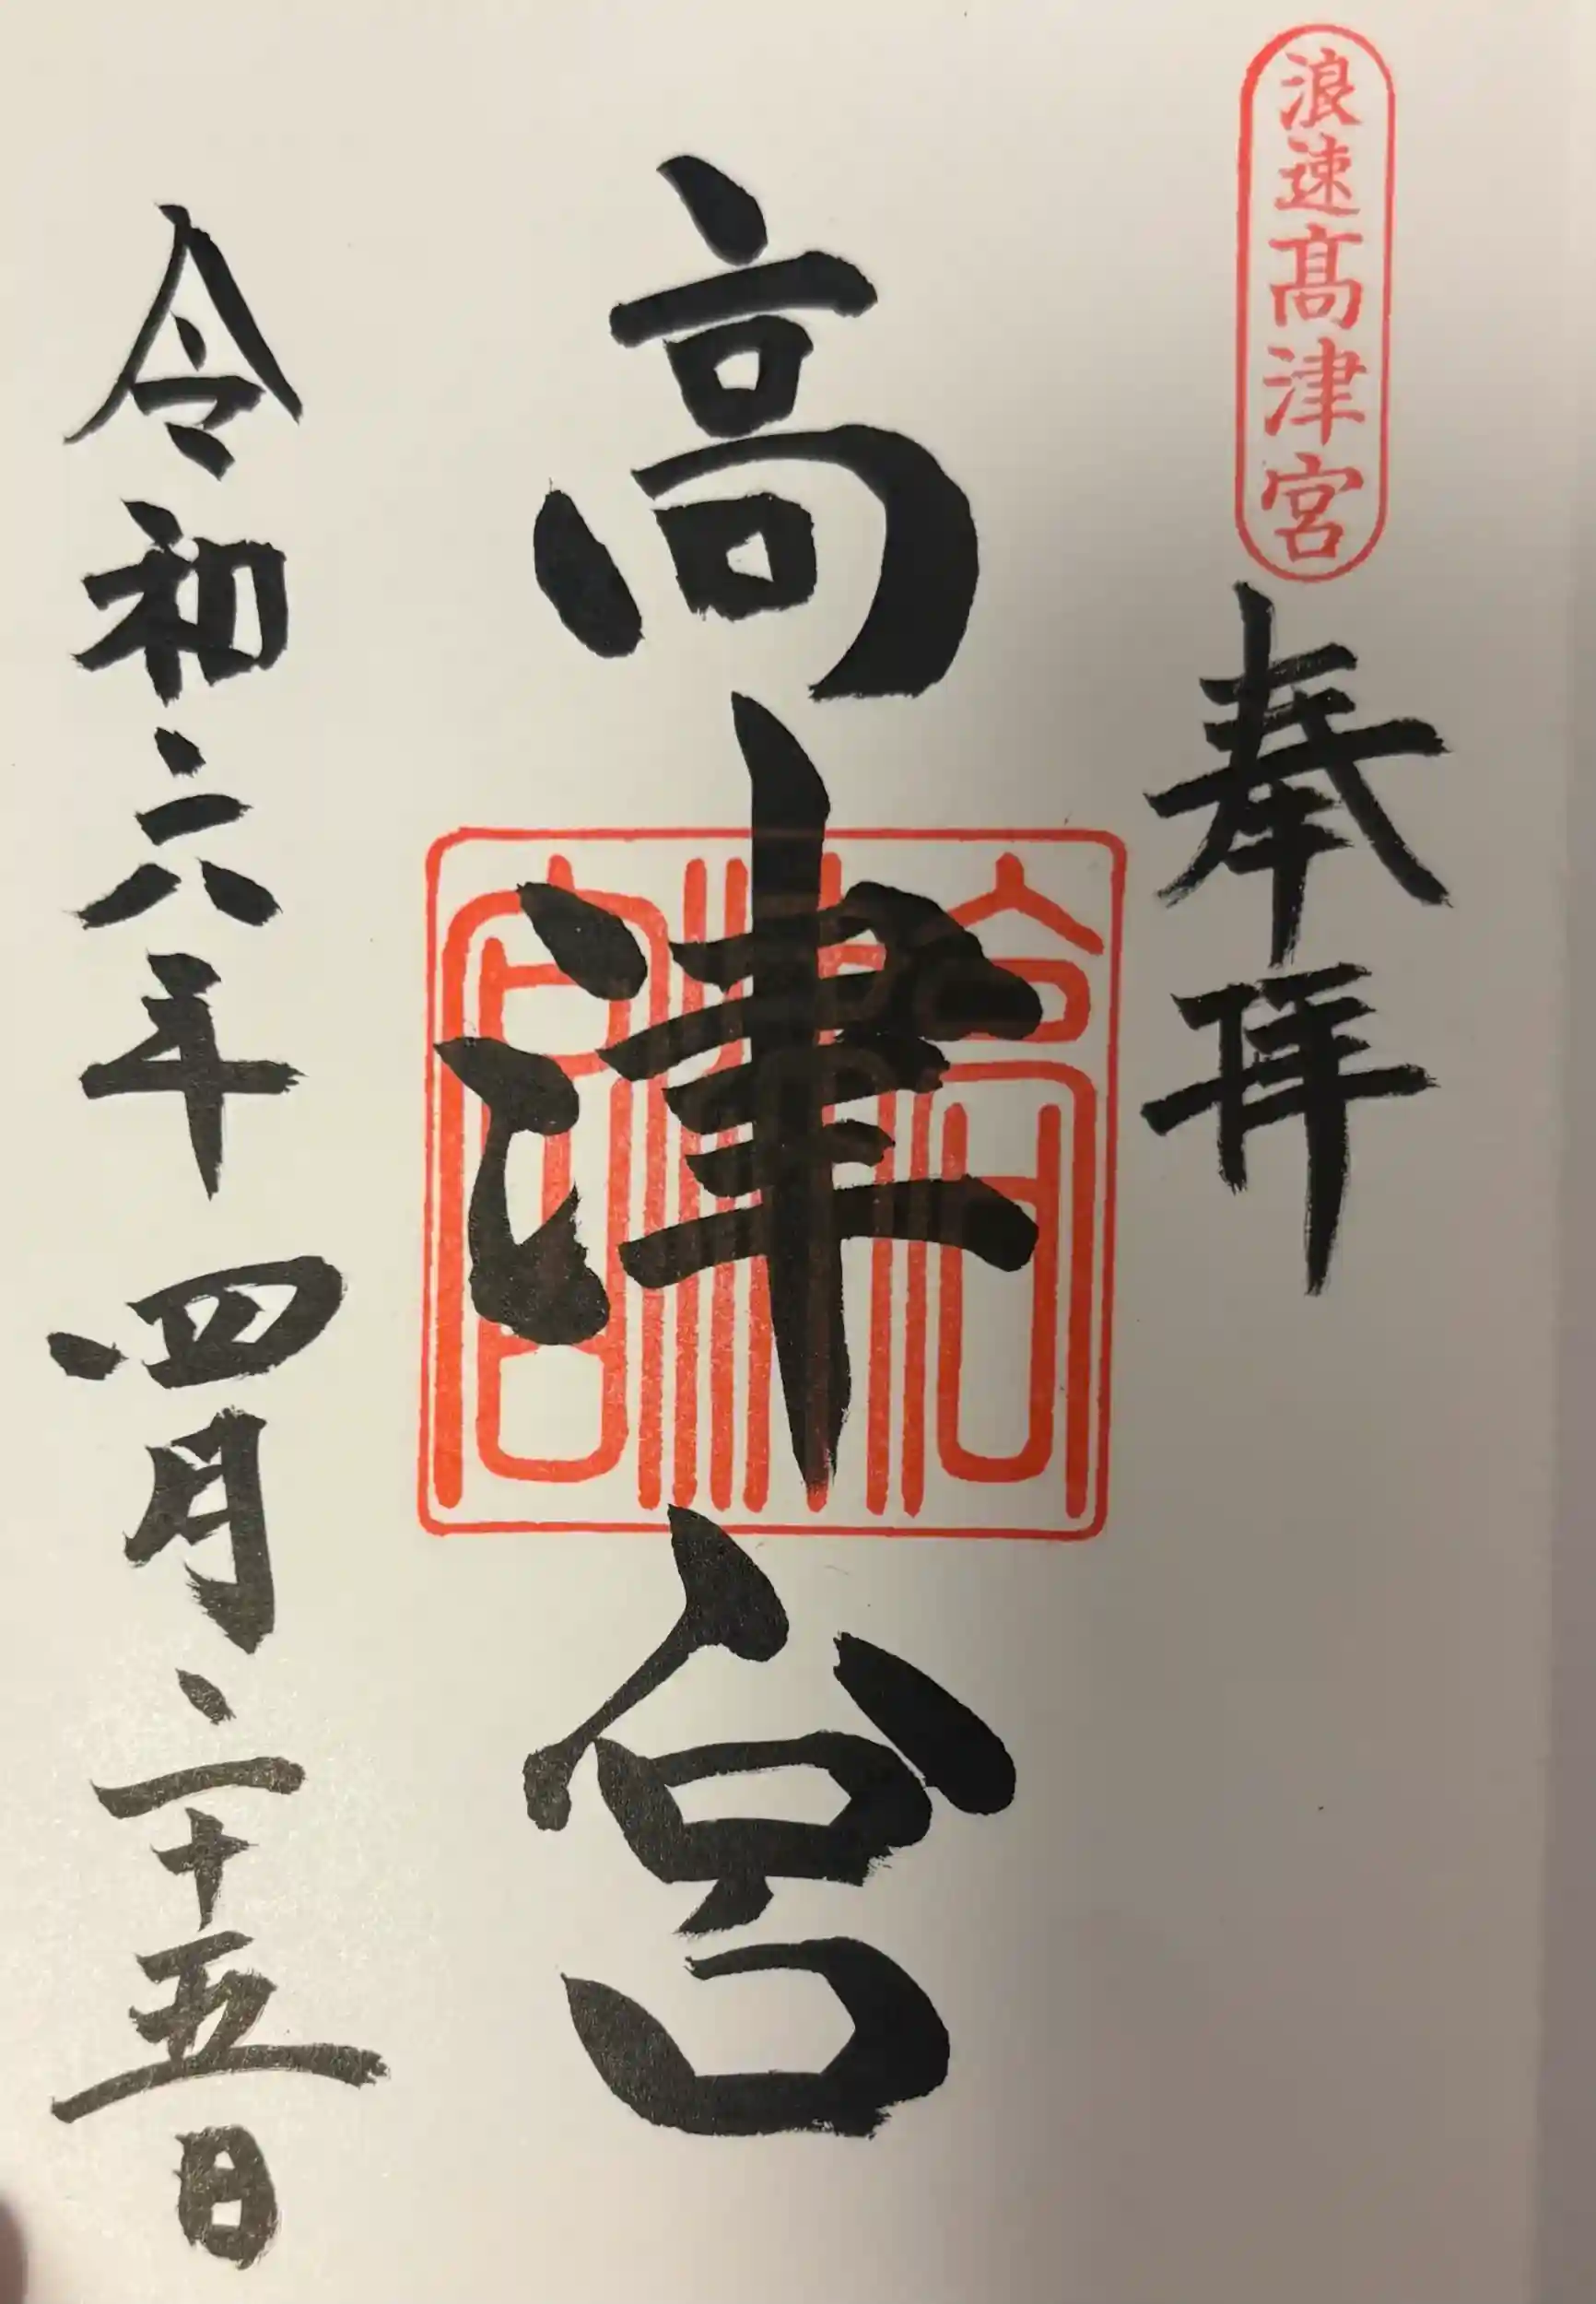 浪速髙津宮
奉拝
高津宮
髙津宮
令和六年四月二十五日